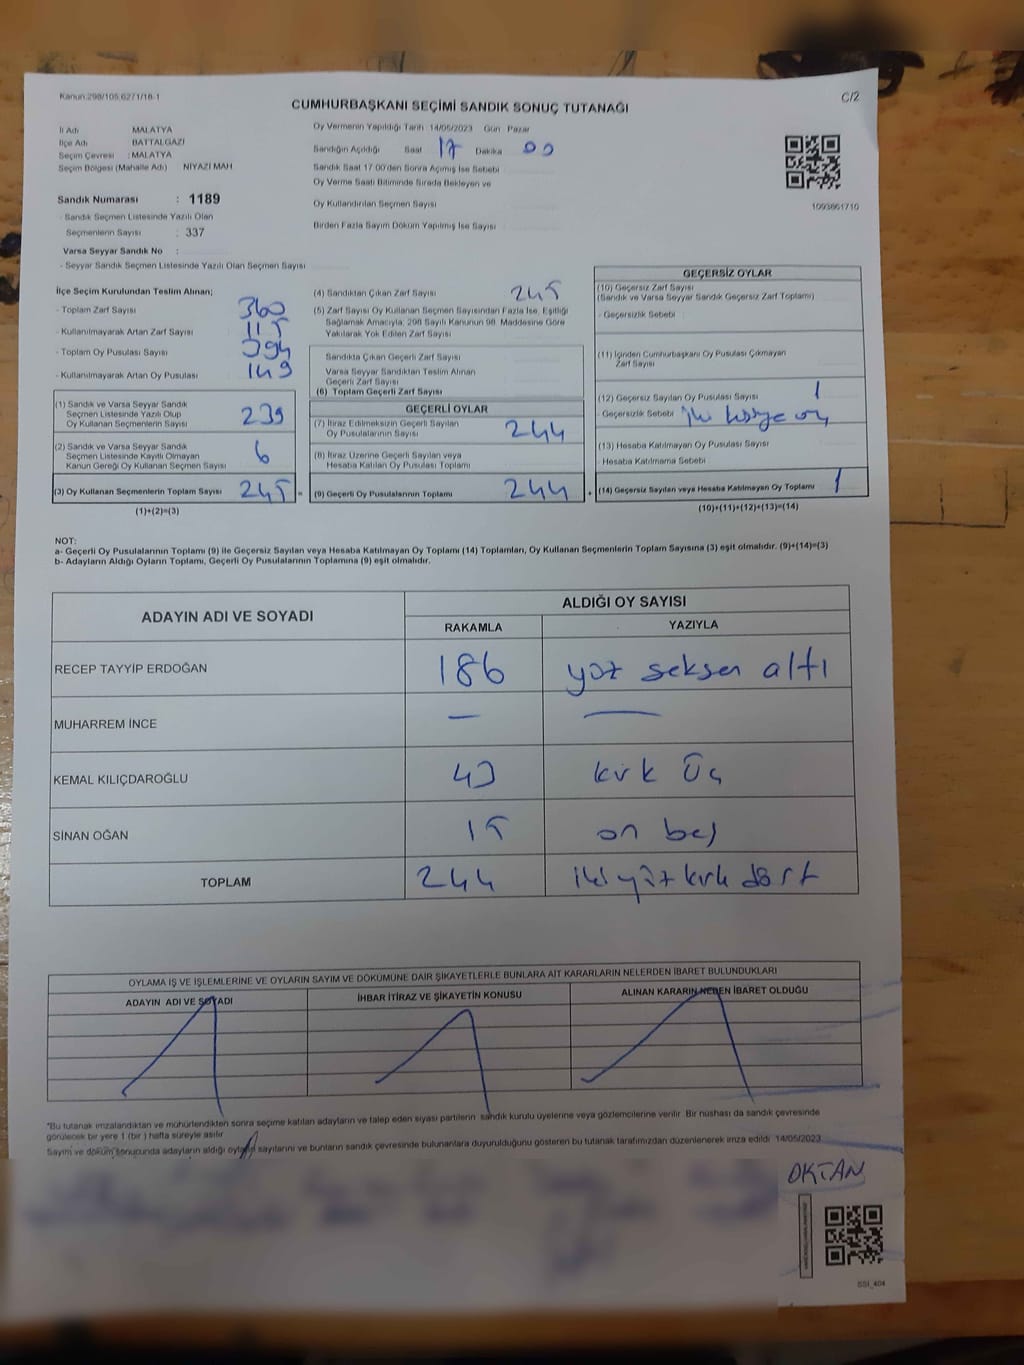 Kanun:298/105,6271/16-1
C/2
CUMHURBAŞKANI SEÇİMİ SANDIK SONUÇ TUTANAĞI
İl Adı MALATYA
İlçe Adı BATTALGAZİ
Seçim Çevresi : MALATYA
Seçim Bölgesi (Mahalle Adı) NİYAZİ MAH
Oy Vermenin Yapıldığı Tarih 14/05/2023 Gün Pazar
Sandığın Açıldığı Saat 17 Dakika 00
Sandık Saat 17:00'den Sonra Açımış İse Sebebi
Oy Verme Saati Bitiminde Sırada Bekleyen ve
Oy Kullandırılan Seçmen Sayısı
Birden Fazla Sayım Döküm Yapılmış İse Sayısı
1093861710
Sandık Numarası : 1189
- Sandık Seçmen Listesinde Yazılı Olan
Seçmenlerin Sayısı : 337
Varsa Seyyar Sandık No :
- Seyyar Sandık Seçmen Listesinde Yazılı Olan Seçmen Sayısı
İlçe Seçim Kurulundan Teslim Alınan;
- Toplam Zarf Sayısı 360
- Kullanılmayarak Artan Zarf Sayısı 115
- Toplam Oy Pusulası Sayısı 394
- Kullanılmayarak Artan Oy Pusulası 149
(1) Sandık ve Varsa Seyyar Sandık
Seçmen Listesinde Yazılı Olup
Oy Kullanan Seçmenlerin Sayısı 239
(2) Sandık ve Varsa Seyyar Sandık
Seçmen Listesinde Kayıtlı Olmayan
Kanun Gereği Oy Kullanan Seçmen Sayısı 6
(3) Oy Kullanan Seçmenlerin Toplam Sayısı 245 =
(1)+(2)=(3)
(4) Sandıktan Çıkan Zarf Sayısı 245
(5) Zarf Sayısı Oy Kullanan Seçmen Sayısından Fazla İse, Eşitliği
Sağlamak Amacıyla; 298 Sayılı Kanunun 98. Maddesine Göre
Yakılarak Yok Edilen Zarf Sayısı
Sandıkta Çıkan Geçerli Zarf Sayısı
Varsa Seyyar Sandıktan Teslim Alınan
Geçerli Zarf Sayısı
(6) Toplam Geçerli Zarf Sayısı
GEÇERLİ OYLAR
(7) İtiraz Edilmeksizin Geçerli Sayılan
Oy Pusulalarının Sayısı 244
(8) İtiraz Üzerine Geçerli Sayılan veya
Hesaba Katılan Oy Pusulası Toplamı
(9) Geçerli Oy Pusulalarının Toplamı 244 +
GEÇERSİZ OYLAR
(10) Geçersiz Zarf Sayısı
(Sandık ve Varsa Seyyar Sandık Geçersiz Zarf Toplamı)
- Geçersizlik Sebebi :
(11) İçinden Cumhurbaşkanı Oy Pusulası Çıkmayan
Zarf Sayısı
(12) Geçersiz Sayılan Oy Pusulası Sayısı 1
- Geçersizlik Sebebi iki oy
(13) Hesaba Katılmayan Oy Pusulası Sayısı
- Hesaba Katılmama Sebebi
(14) Geçersiz Sayılan veya Hesaba Katılmayan Oy Toplamı 1
(10)+(11)+(12)+(13)=(14)
NOT:
a- Geçerli Oy Pusulalarının Toplamı (9) ile Geçersiz Sayılan veya Hesaba Katılmayan Oy Toplamı (14) Toplamları, Oy Kullanan Seçmenlerin Toplam Sayısına (3) eşit olmalıdır. (9)+(14)=(3)
b- Adayların Aldığı Oyların Toplamı, Geçerli Oy Pusulalarının Toplamına (9) eşit olmalıdır.
ADAYIN ADI VE SOYADI ALDIĞI OY SAYISI
RAKAMLA YAZIYLA
RECEP TAYYİP ERDOĞAN 186 yüz seksen altı
MUHARREM İNCE — —
KEMAL KILIÇDAROĞLU 43 kırk Üç
SİNAN OĞAN 15 on beş
TOPLAM 244 iki yüz kırk dört
OYLAMA İŞ VE İŞLEMLERİNE VE OYLARIN SAYIM VE DÖKÜMÜNE DAİR ŞİKAYETLERLE BUNLARA AİT KARARLARIN NELERDEN İBARET BULUNDUKLARI
ADAYIN ADI VE SOYADI İHBAR İTİRAZ VE ŞİKAYETİN KONUSU ALINAN KARARIN NEDEN İBARET OLDUĞU
*Bu tutanak imzalandıktan ve mühürlendikten sonra seçime katılan adayların ve talep eden siyasi partilerin sandık kurulu üyelerine veya gözlemcilerine verilir. Bir nüshası da sandık çevresinde
görülecek bir yere 1 (bir) hafta süreyle asılır
Sayım ve döküm sonucunda adayların aldığı oyların sayılarını ve bunların sandık çevresinde bulunanlara duyurulduğunu gösteren bu tutanak tarafımızdan düzenlenerek imza edildi. 14/05/2023
OKTAN
SSI_404